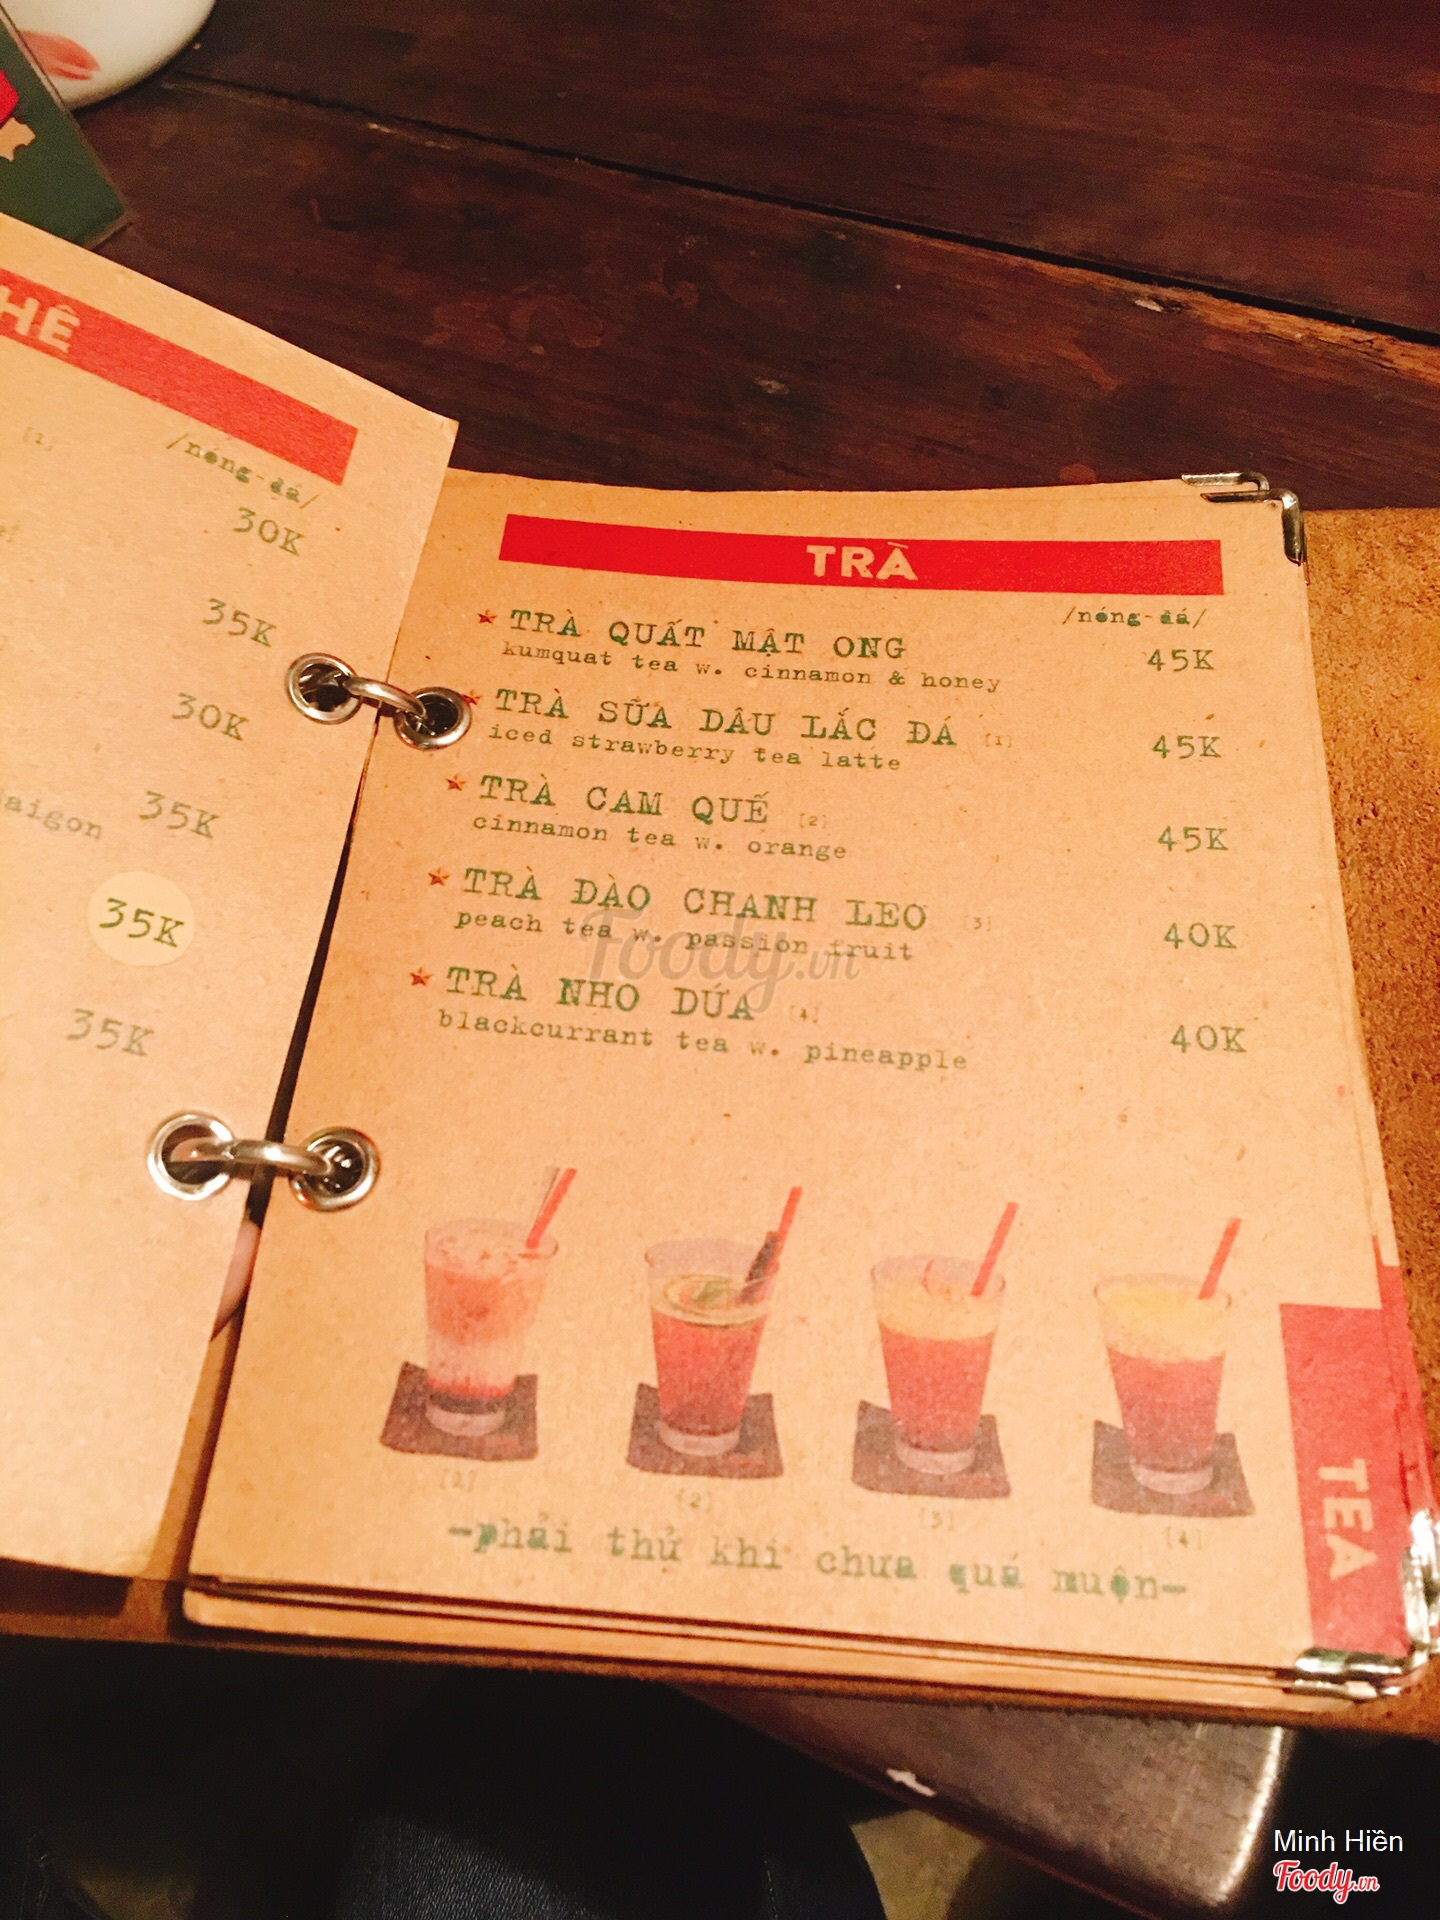 HÊ
[1]
/nóng-đá/
30K
35K
30K
aigon 35K
35K
35K
TRÀ
/nóng-đá/
TRÀ QUẤT MẬT ONG 45K
kumquat tea w. cinnamon & honey
TRÀ SỮA DÂU LẮC ĐÁ [1] 45K
iced strawberry tea latte
TRÀ CAM QUẾ [2] 45K
cinnamon tea w. orange
TRÀ ĐÀO CHANH LEO [3] 40K
peach tea w. passion fruit
TRÀ NHO DỨA [4] 40K
blackcurrant tea w. pineapple
Foody.vn
[1] [2] [3] [4]
-phải thử khi chưa quá muộn-
TEA
Minh Hiền
Foody.vn